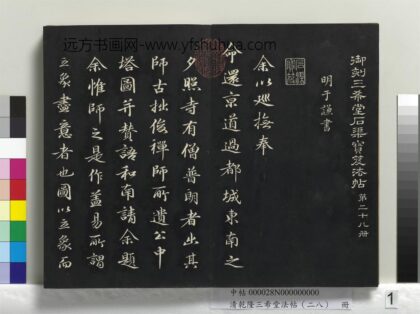 远方书画网-www.yfshuhua.com
御刻三希堂石渠寶笈法帖 第二十八冊
明于謙書
余以巡撫奉
命還京道過都城東南之
夕照寺有僧普朗者出其
師古拙俊禪師所遺公中
塔圖并贊語和南請余題
余惟師之是作蓋易所謂
立象盡意者也圖以立象而
中帖 000028N000000000
清乾隆三希堂法帖(二八) 冊
1